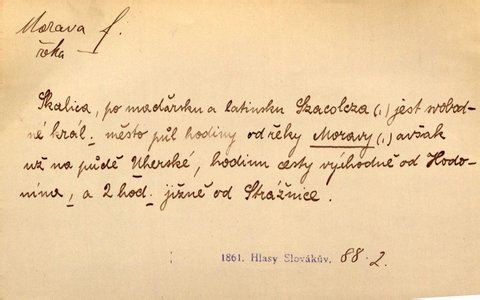 Morava f.
řeka
Skalica, po maďarsku a latinsku Szacolcza (,) jest svobod-
né král. město půl hodiny od řéky Moravy (,) avšak
už na půdě Uherské, hodinu cesty východně od Hodo-
nína, a 2 hod. jižně od Strážnice.
1861. Hlasy Slovákův. 88.2.